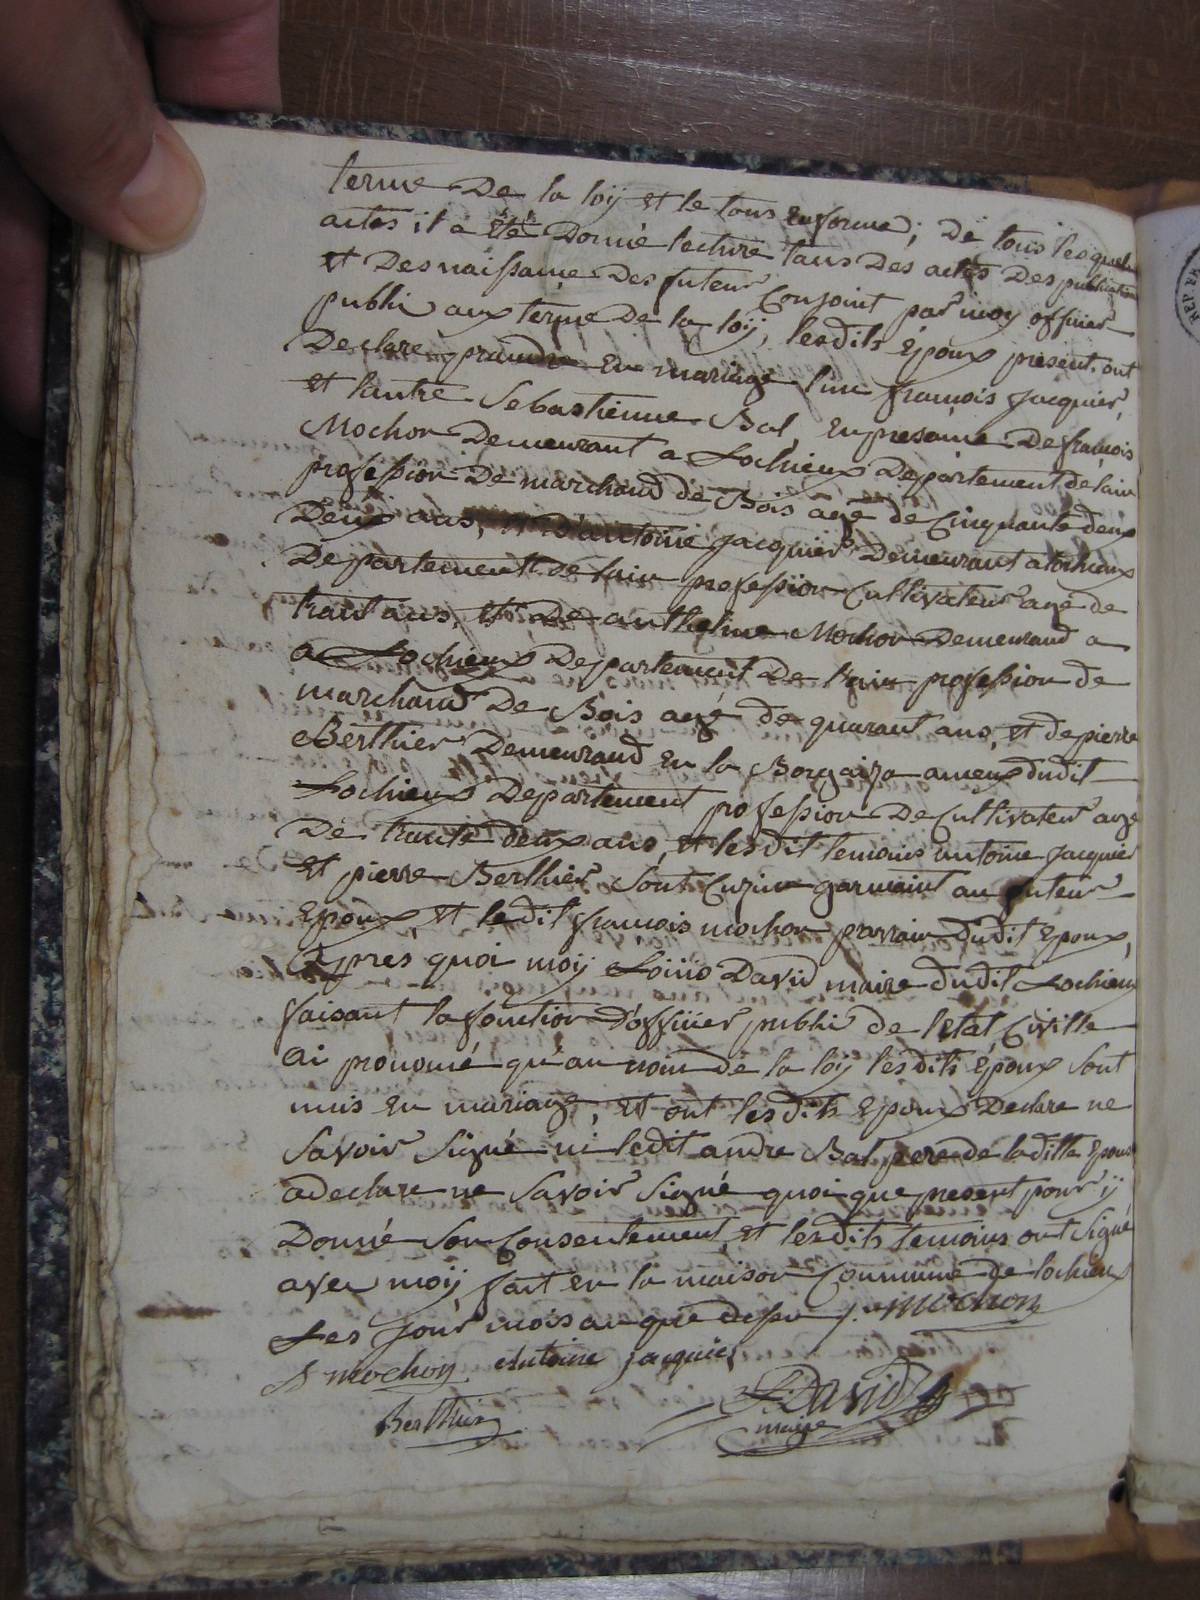 terme De la loÿ et le tous enforme; De tous lesquels
actes il a été Donné lecture tans Des actes Des publication
et Des naissance Des futeur Conjoint par moy officier
public aux terme De la loÿ, lesdits Epoux présent ont
Declare prandre en mariage l'un françois Jacquier,
et l'autre Sebastienne Bal, en presance De françois
Mochon Demeurant a Lochieux Departement de lain
profession De marchand de Bois agé de Cinquante deux
Deux ans, et D'antoine Jacquier Demeurant a lochieux
Departement De lain profession Cultivateur agé de
trant ans, et De anthelme Mochon Demeurand a
a Lochieux Departement De lain profession de
marchand De Bois agé de quarant ans, et de pierre
Berthier Demeurand en la Borgaiza ameux dudit
Lochieux Departement profession De Cultivateur agé
De trante deux ans, et lesdit temoins antoine Jacquier
et pierre Berthier sont Cuzin garmaint au futeur
Epoux, et ledit françois mochon parrain dudit Epoux,
Apres quoi moÿ Loüis David maire dudit Lochieux
faisant la fonction D'officier public de l'etat Civille
ai pronomé qu'au nom de la loÿ lesdits Epoux sont
unis en mariage, et ont lesdits Epoux Declare ne
savoir signé ni ledit andre Bal pere de laditte Epouse
a declare ne savoir signé quoi que present pour ÿ
Donné son Consentement et lesdits temoins ont signé
avec moÿ, fait en la maison Commune de lochieux
Les jour mois an que dessu f. mochon
A mochon Antoine jacquier
L. David
Berthier
maire